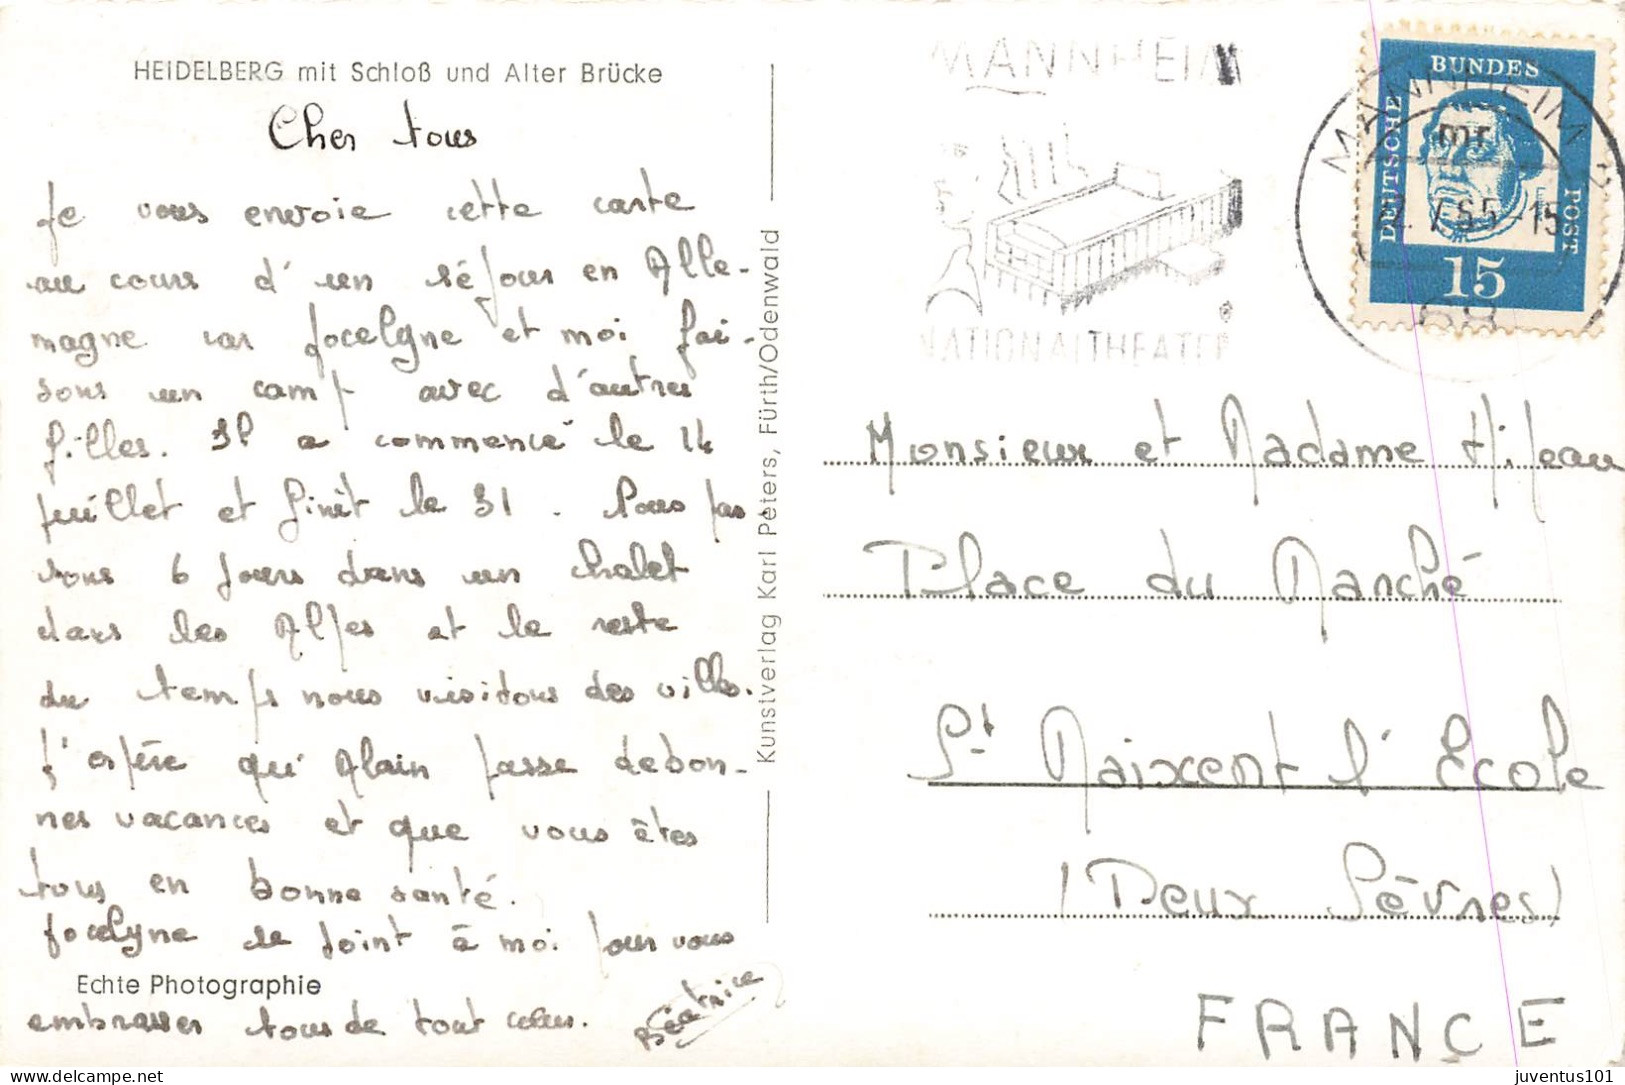 HEIDELBERG mit Schloß und Alter Brücke
Cher tous
Je vous envoie cette carte
au cours d'un séjour en Alle-
magne car Jocelyne et moi fai-
sons un camp avec d'autres
filles. Il a commencé le 14
juillet et finit le 31. Nous pas-
sons 6 jours dans un chalet
dans les Alpes et le reste
du temps nous visitons des villes.
J'espère qu'Alain passe de bon-
nes vacances et que vous êtes
tous en bonne santé.
Jocelyne se joint à moi pour vous
Echte Photographie
embrasser tous de tout cœur.
Béatrice
Kunstverlag Karl Peters, Fürth/Odenwald
MANNHEIM
NATIONALTHEATER
MANNHEIM
22.7.65-15
68
DEUTSCHE
BUNDES
POST
15
Monsieur et Madame
Place du Marché
St Maixent l'Ecole
(Deux Sèvres)
FRANCE
juventus101